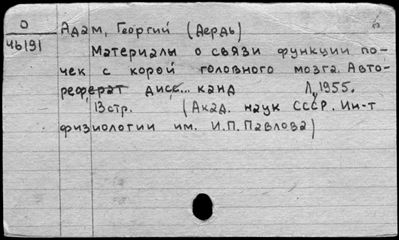 О Адам, Георгий (Дердь)
46191
Материалы о связи функции по-
чек с корой головного мозга. Авто-
реферат дисс... канд Л., 1955.
13 стр. (Акад. наук СССР. Ин-т
физиологии им. И.П. Павлова)